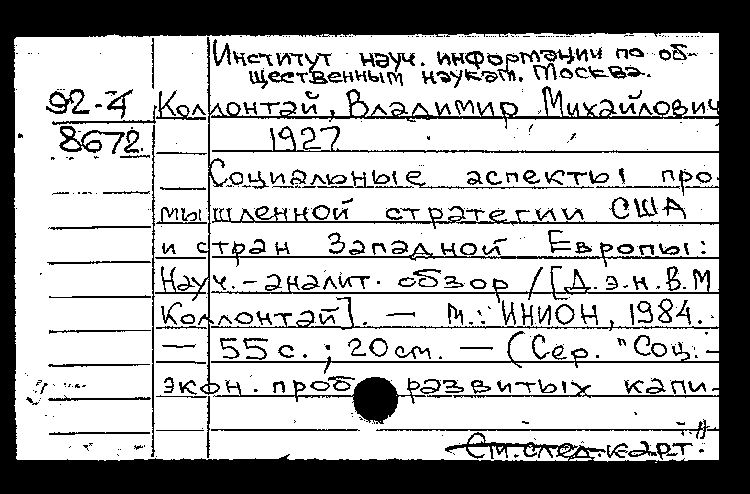 Институт науч. информации по об-
щественным наукам. Москва.
92-4 Коллонтай, Владимир Михайлович
8672 1927
Социальные аспекты про-
мышленной стратегии США
и стран Западной Европы:
Науч.-аналит. обзор / [Д.э.н. В.М
Коллонтай]. — М.: ИНИОН, 1984.
— 55 с.; 20 см. — (Сер. "Соц.-
экон. проб развитых капи-
См. след. карт.